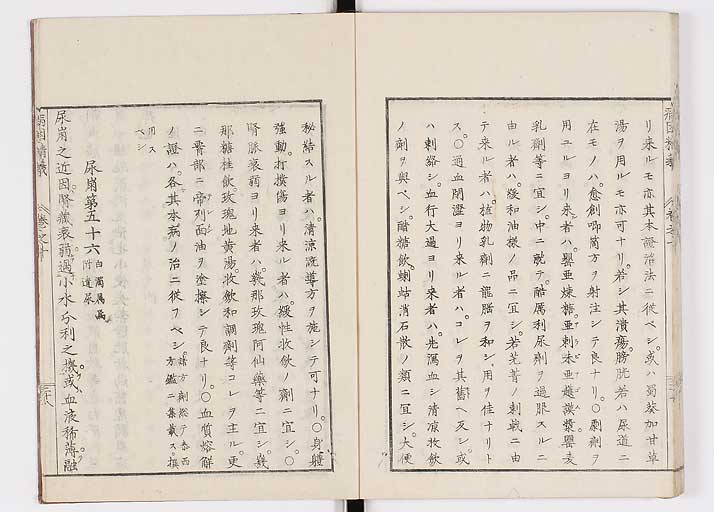 リ來ルモ亦其本證治法ニ從ベシ或ハ蜀葵加甘草
湯ヲ用ルモ亦可ナリ若シ其潰瘍膀胱若ハ尿道ニ
在モノハ愈創喞筒方ヲ射注シテ良ナリ○劇劑ヲ
用ユルヨリ來者ハ罌亜煉糖亜刺未亜 罌麦
乳劑等ニ宜シ中ニ就テ酷厲利尿劑ヲ過服スルニ
由ル者ハ緩和油様ノ品ニ宜シ若芫菁ノ刺戟ニ由
テ來ル者ハ植物乳劑ニ龍脳ヲ和シ用ヲ佳ナリト
ス○過血閉澀ヨリ來ル者ハコレヲ其舊ヘ反シ或
ハ刺絡シ血行大過ヨリ來者ハ先瀉血シ清凉收飲
ノ劑ヲ與ベシ醋糖飲蝲蛄消石散ノ類ニ宜シ大便
秘結スル者ハ清凉 導方ヲ施シテ可ナリ○身軆
強動打撲傷ヨリ來ル者ハ緩性收飲ノ劑ニ宜シ○
腎脈衰弱ヨリ來者ハ幾那玫瑰阿仙藥等ニ宜シ幾
那糖桂飲玫瑰地黄湯收飲和調劑等コレヲ主ル更
ニ腎部ニ帝列面油ヲ塗擦シテ良ナリ○血質熔解
ノ證ハ各其本病ノ治ニ從フベシ諸方劑總テ泰西方鑑ニ集載ス撰
用スベシ
尿崩第五十六 白濁屬焉附遺尿
尿崩之近因腎臓衰弱過小水分利之機或血液稀薄融